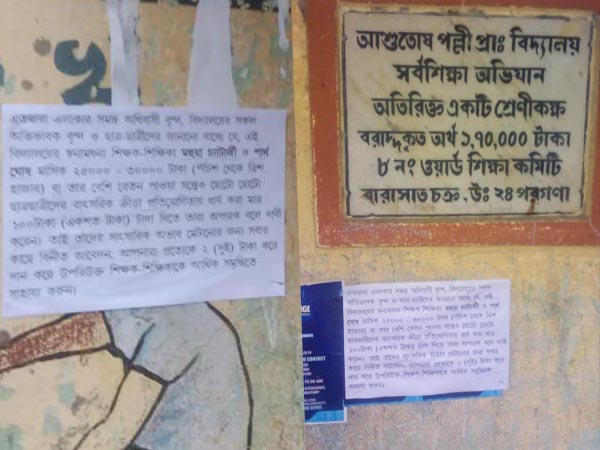 এতদ্বারা এলাকার সমস্ত অধিবাসী বৃন্দ, বিদ্যালয়ের সকল
অভিভাবক বৃন্দ ও ছাত্র-ছাত্রীদের জানানো যাচ্ছে যে, এই
বিদ্যালয়ের স্বনামধন্য শিক্ষক-শিক্ষিকা মহুয়া চ্যাটার্জী ও পার্থ
ঘোষ মাসিক ২৫০০০ - ৩০০০০ টাকা (পঁচিশ থেকে ত্রিশ
হাজার) বা তার বেশি বেতন পাওয়া সত্ত্বেও ছোটো ছোটো
ছাত্রছাত্রীদের বাৎসরিক ক্রীড়া প্রতিযোগিতায় ধার্য করা মাত্র
১০০টাকা (একশত টাকা) চাঁদা দিতে তারা অপারক বলে দাবী
করেন। তাই তাঁদের সাংসারিক অভাব মেটানোর জন্য সবার
কাছে বিনীত আবেদন, আপনারা প্রত্যেকে ২ (দুই) টাকা করে
দান করে উপরিউক্ত শিক্ষক-শিক্ষিকাকে আর্থিক সমৃদ্ধিতে
সাহায্য করুন।
আশুতোষ পল্লী প্রাঃ বিদ্যালয়
সর্বশিক্ষা অভিযান
অতিরিক্ত একটি শ্রেণীকক্ষ
বরাদ্দকৃত অর্থ ১,৭০,০০০ টাকা
৮ নং ওয়ার্ড শিক্ষা কমিটি
বারাসাত চক্র. উঃ ২৪ পরগণা
এতদ্বারা এলাকার সমস্ত অধিবাসী বৃন্দ, বিদ্যালয়ের সকল
অভিভাবক বৃন্দ ও ছাত্র-ছাত্রীদের জানানো যাচ্ছে যে, এই
বিদ্যালয়ের স্বনামধন্য শিক্ষক-শিক্ষিকা মহুয়া চ্যাটার্জী ও পার্থ
ঘোষ মাসিক ২৫০০০ - ৩০০০০ টাকা (পঁচিশ থেকে ত্রিশ
হাজার) বা তার বেশি বেতন পাওয়া সত্ত্বেও ছোটো ছোটো
ছাত্রছাত্রীদের বাৎসরিক ক্রীড়া প্রতিযোগিতায় ধার্য করা মাত্র
১০০টাকা (একশত টাকা) চাঁদা দিতে তারা অপারক বলে দাবী
করেন। তাই তাঁদের সাংসারিক অভাব মেটানোর জন্য সবার
কাছে বিনীত আবেদন, আপনারা প্রত্যেকে ২ (দুই) টাকা করে
দান করে উপরিউক্ত শিক্ষক-শিক্ষিকাকে আর্থিক সমৃদ্ধিতে
সাহায্য করুন।